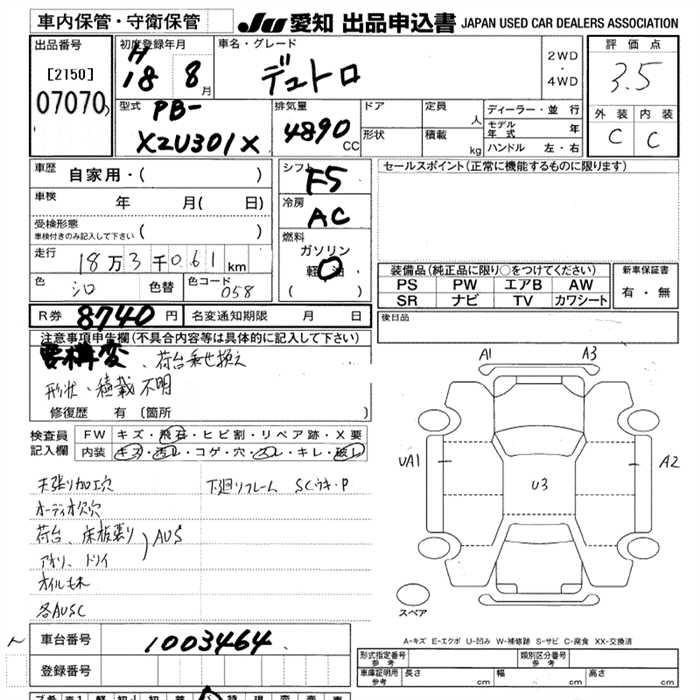 車内保管・守衛保管
JU 愛知 出品申込書 JAPAN USED CAR DEALERS ASSOCIATION
出品番号
[2150]
07070
初度登録年月
H
18 8月
車名・グレード
デュトロ
2WD
・
4WD
評価点
3.5
外装 内装
C C
型式 PB-
XZU301X
排気量
4890
CC
ドア
形状
定員
人
積載
kg
ディーラー・並行
モデル年式 年
ハンドル 左・右
車歴
自家用・( )
車検
年 月( 日)
受検形態
車検付きのみ記入して下さい ( )
走行
18万3千061km
色 シロ 色替 色コード 058
R券 8740円 名変通知期限 月 日
シフト
F5
冷房
AC
燃料
ガソリン
軽油
( )
セールスポイント(正常に機能するものに限ります)
装備品(純正品に限り○をつけてください)
PS PW エアB AW
SR ナビ TV カワシート
新車保証書
有・無
後日品
注意事項申告欄(不具合内容等は具体的に記入して下さい)
要構変、荷台乗せ換え
形状・積載不明
修復歴 有 〔箇所 〕
検査員
記入欄
FW キズ・飛石・ヒビ割・リペア跡・X要
内装 キズ・汚レ・コゲ・穴・スレ・キレ・破レ
天張り加工穴
下廻りフレーム SCウキ・P
オーディオ欠穴
荷台、床板張り
アオリ、トリイ
AUS
オイルモレ
各AUSC
A1 A3
UA1 U3 A2
スペア
A-キズ E-エクボ U-凹み W-補修跡 S-サビ C-腐食 XX-交換済
車台番号 1003464
登録番号
型式指定番号
参考
類別区分番号
参考
車庫証明用
参考
長さ cm 幅 cm 高さ cm